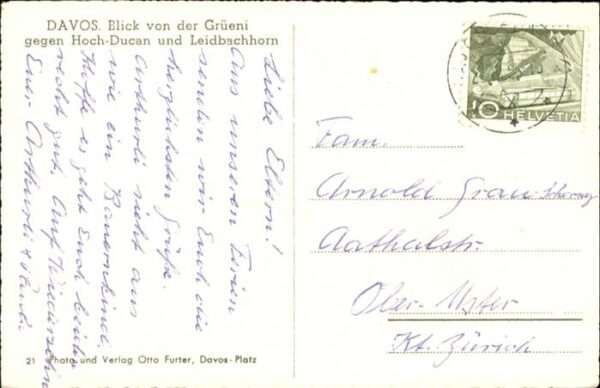 DAVOS. Blick von der Grüeni
gegen Hoch-Ducan und Leidbachhorn
Liebe Eltern!
Aus unseren Ferien
senden wir Euch die
herzlichsten Grüße.
Arthurli sieht aus
wie ein Bauernkind.
Hoffe es geht Euch beiden
recht gut. Auf Wiedersehn
Euer Arthurli &
21 Photo und Verlag Otto Furter, Davos-Platz
10 HELVETIA
Fam.
Arnold Grau-
Aathalstr.
Ober-Uster
Kt. Zürich